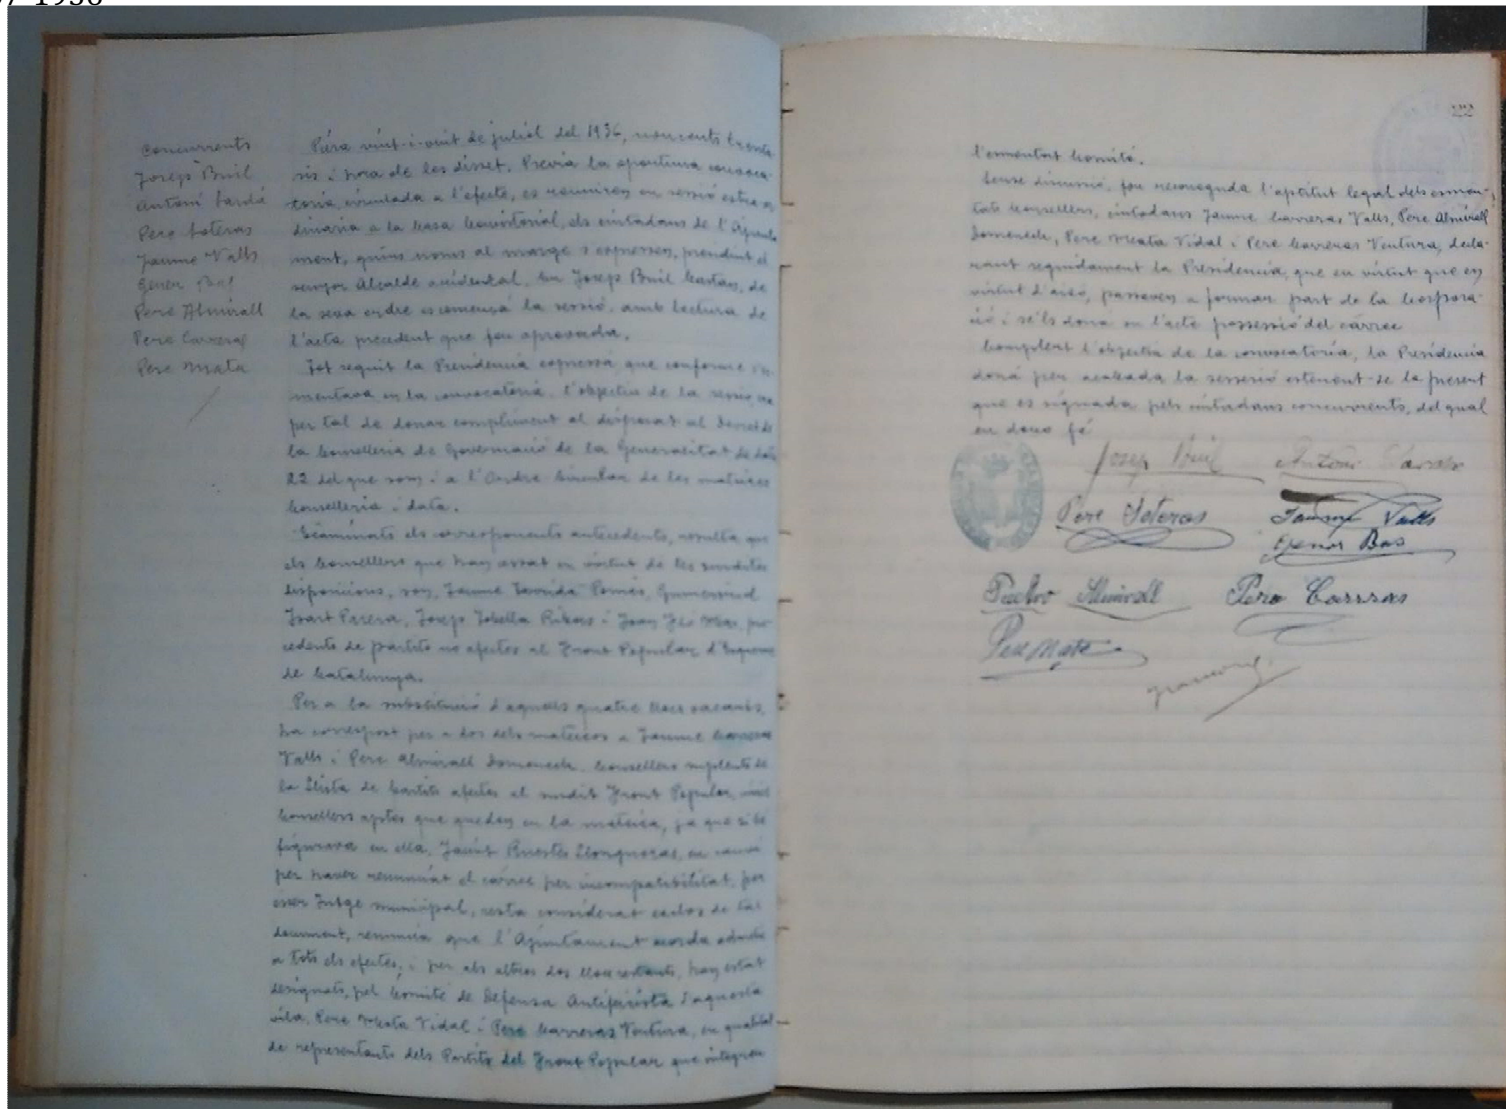 7-1936
Concurrents
Josep Bruil
Antoni
Pere Soteras
Jaume Valls
Gener Bas
Pere Almirall
Pere Carreras
Pere Mata
vint-i-vuit de juliol del 1936, noucents trenta
sis i hora de les disset. Previa la oportuna convoca-
toria, circulada a l'efecte, es reuniren en sessió extraor
dinaria a la Casa Consistorial, els ciutadans de l'Ajunta
ment, quins noms al marge s'expressen, presidint el
senyor Alcalde accidental, En Josep Bruil de
la seva ordre es comensá la sessió, amb lectura de
l'acta precedent que fou aprovada.
Tot seguit la Presidencia expressá que conforme s'es
mentava en la convocatoria, l'objectiu de la sessió era
per tal de donar compliment al disposat al Decret de
la Conselleria de Governació de la Generalitat de data
22 del que som i a l'Ordre Circular de les mateixes
Conselleria i data.
Examinats els corresponents antecedents, resulta que
els Consellers que han cessat en virtut de les susdites
disposicions, son, Jaume Pomés, Gumersind
Isart Parera, Josep Tobella Ribas i Joan Mas, pro
cedents de partits no afectes al Front Popular d'Esquerres
de Catalunya.
Per a la substitució d'aquells quatre llocs vacants,
ha correspost per a dos dels mateixos a Jaume Carreras
Valls i Pere Almirall Domenech, Consellers suplents de
la Llista de Partits afectes al susdit Front Popular, unics
Consellers aptes que queden en la mateixa, ja que si bé
figurava en ella, Jacint Llongueras, en canvi
per haver renunciat el carrec per incompatibilitat, per
esser Jutge municipal, resta considerat exclos de tal
document, renuncia que l'Ajuntament acorda admetre
a tots els efectes, i per als altres dos llocs restants, han estat
designats, pel Comité de Defensa Antifeixista d'aquesta
vila, Pere Mata Vidal i Pere Carreras Ventura, en qualitat
de representants dels Partits del Front Popular que integren
222
l'esmentat Comité.
Sense discussió, fou reconeguda l'aptitut legal dels esmen-
tats Consellers, ciutadans Jaume Carreras Valls, Pere Almirall
Domenech, Pere Mata Vidal i Pere Carreras Ventura, decla-
rant seguidament la Presidencia, que en virtut que en
virtut d'aixó, passaven a formar part de la Corpora-
ció i se'ls doná en l'acte possessió del cárrec
Complert l'objectiu de la convocatoria, la Presidencia
doná per acabada la sessió estenent-se la present
que es signada pels ciutadans concurrents, del qual
en dono fé
Josep Bruil Antoni
Pere Soteras Jaume Valls
Gener Bas
Pedro Almirall Pere Carreras
Pere Mata